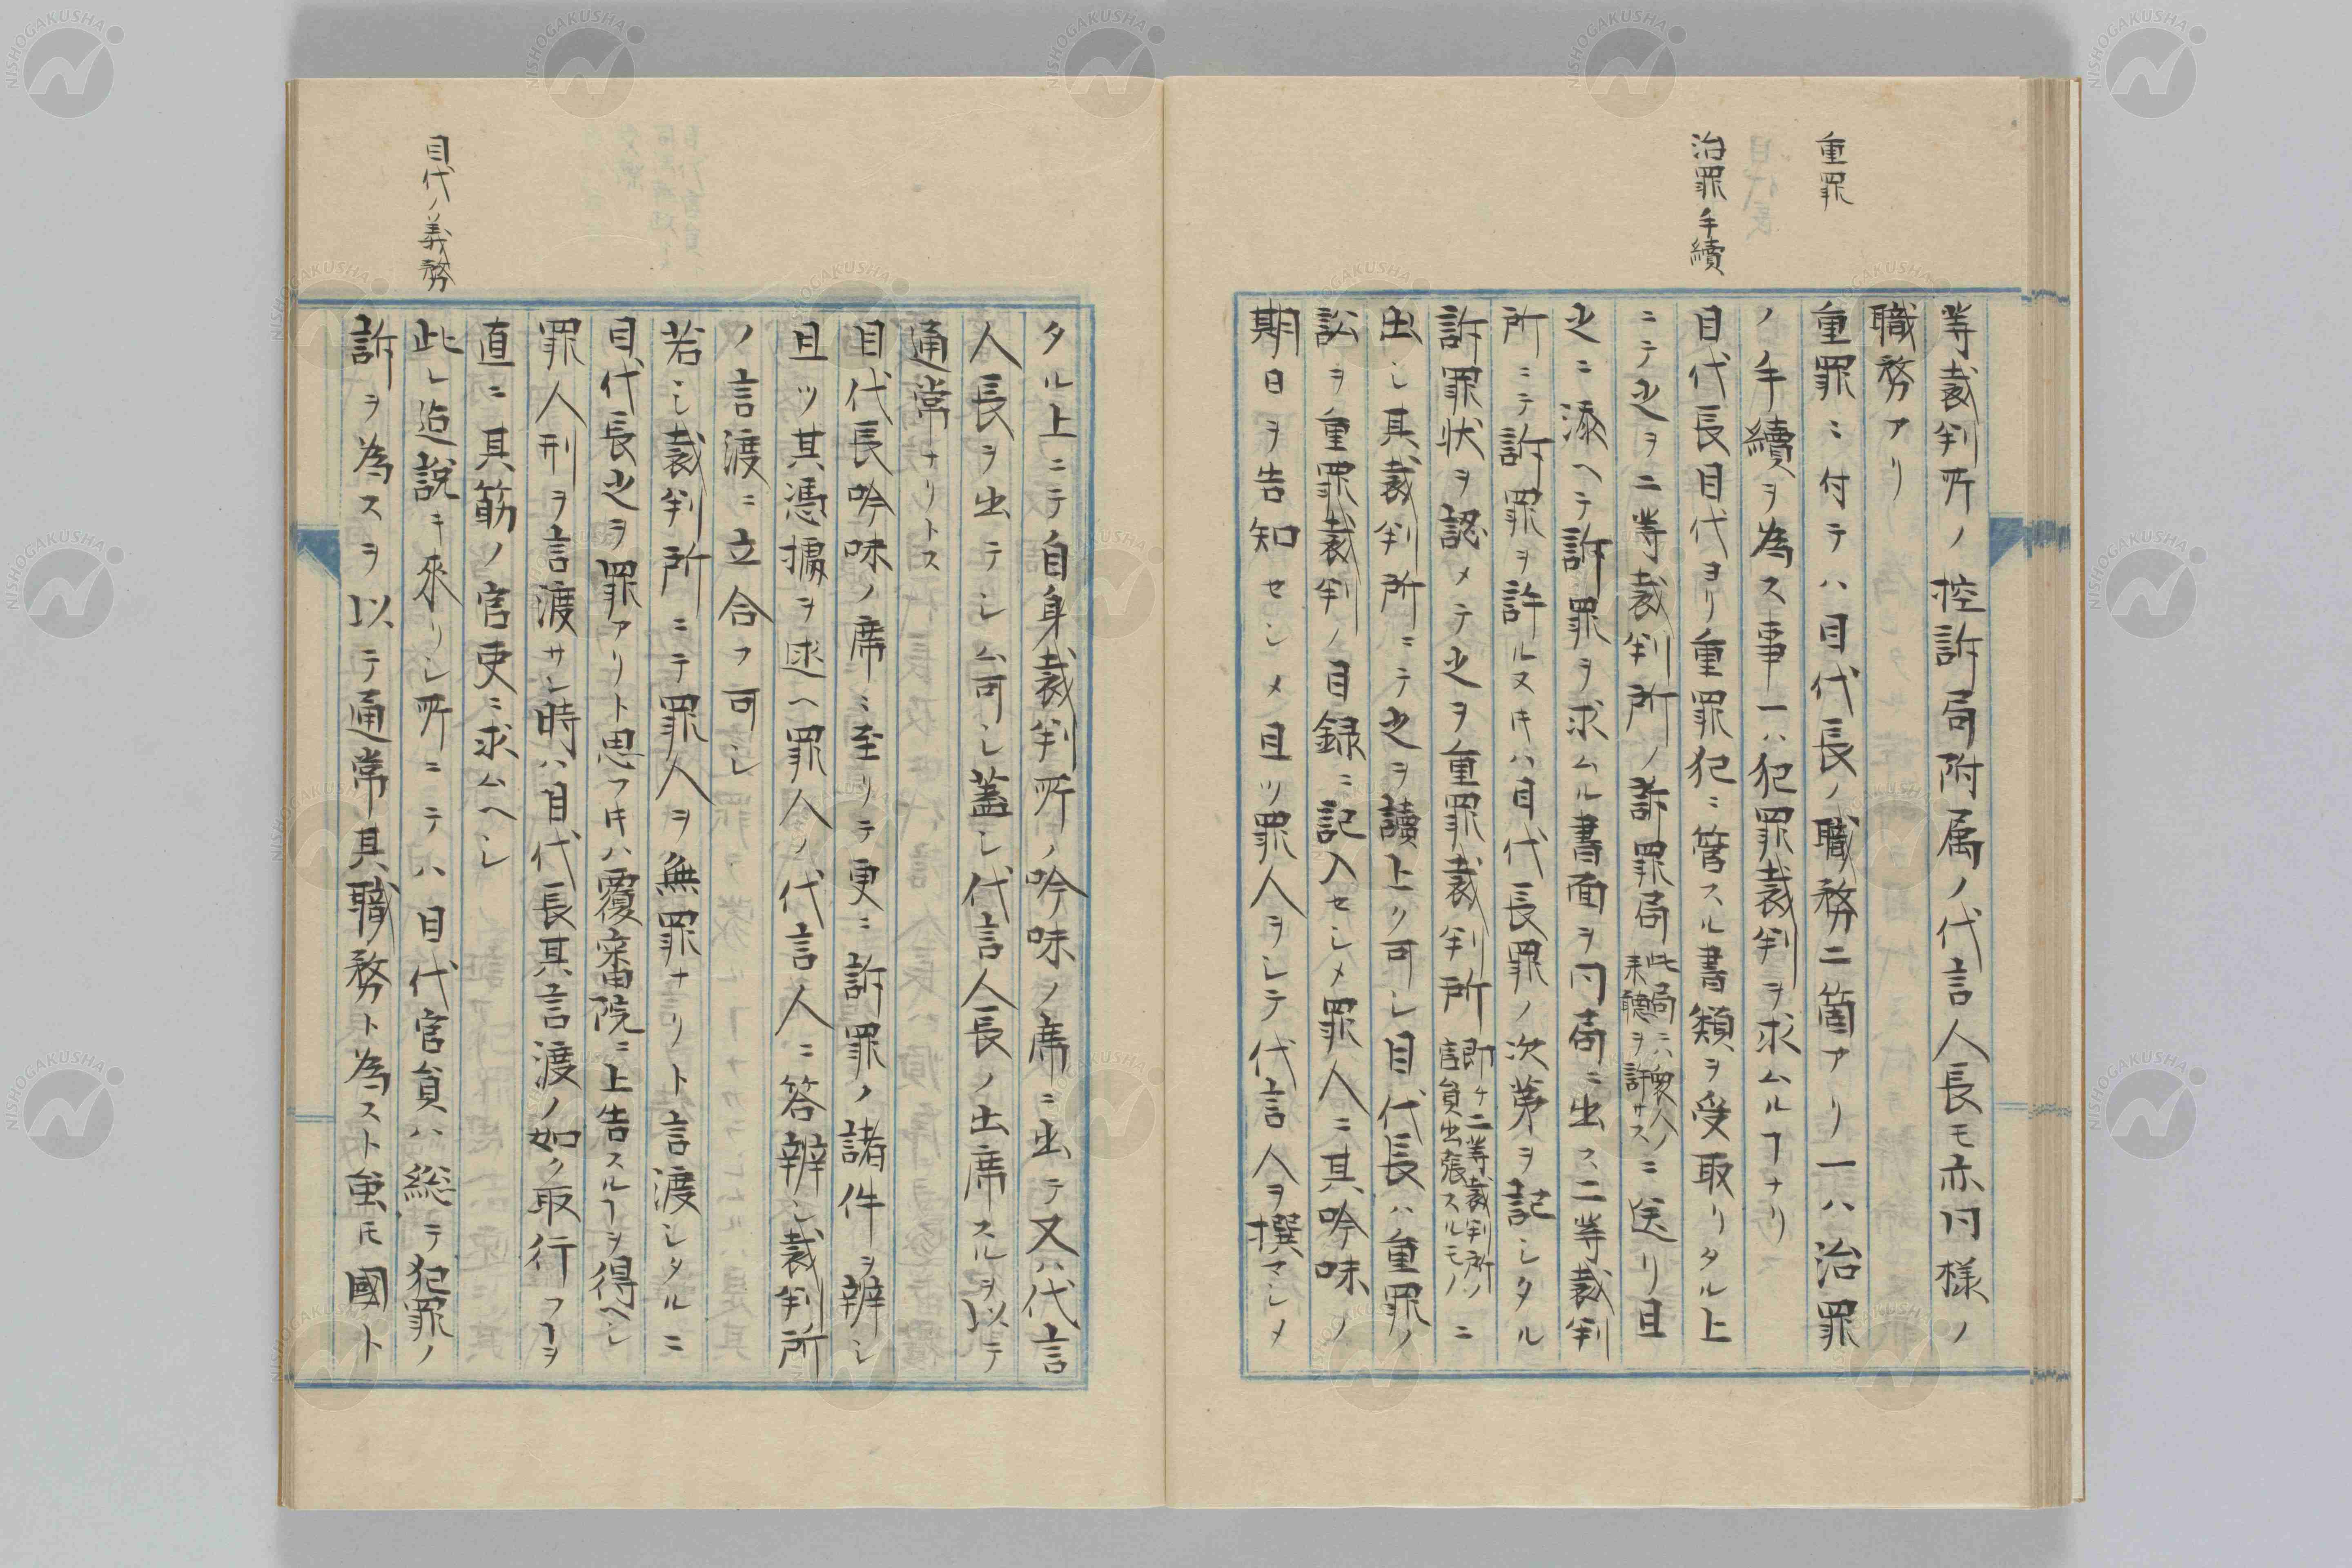 重罪
治罪手續
等裁判所ノ控訴局附属ノ代言人長モ亦同樣ノ
職務アリ
重罪ニ付テハ目代長ノ職務二箇アリ一ハ治罪
ノ手續ヲ為ス事一ハ犯罪裁判ヲ求ムルヿナリ
目代長目代ヨリ重罪犯ニ管スル書類ヲ受取リタル上
ニテ之ヲ二等裁判所ノ訴罪局此局ニハ衆人ノ来聴ヲ許サスニ送リ且
之ニ添ヘテ訴罪ヲ求ムル書面ヲ同局ニ出ス二等裁判
所ニテ訴罪ヲ許ルスキハ目代長罪ノ次第ヲ記シタル
訴罪状ヲ認メテ之ヲ重罪裁判所即ケ二等裁判所ノ官員出張スルモノニ
出シ其裁判所ニテ之ヲ讀上ク可シ目代長ハ重罪ノ
訟ヲ重罪裁判ノ目録ニ記入セシメ罪人ニ其吟味ノ
期日ヲ告知セシメ且ツ罪人ヲシテ代言人ヲ撰マシメ
タル上ニテ自身裁判所ノ吟味ノ席ニ出テ又ハ代言
人長ヲ出テシム可シ蓋シ代言人長ノ出席スルヲ以テ
通常ナリトス
目代長吟味ノ席ニ至リテ更ニ訴罪ノ諸件ヲ辨シ
且ツ其憑據ヲ述ヘ罪人ノ代言人ニ答辨シ裁判所
ノ言渡ニ立合フ可シ
若シ裁判所ニテ罪人ヲ無罪ナリト言渡シタルニ
目代長之ヲ罪アリト思フキハ覆審院ニ上告スルヿヲ得ヘシ
罪人刑ヲ言渡サレ時ハ目代長其言渡ノ如ク取行フヿヲ
直ニ其筋ノ官吏ニ求ムヘシ
目代ノ義務
此レ迄說キ來リシ所ニテハ目代官員ハ総テ犯罪ノ
訴ヲ為スヲ以テ通常其職務ト為スト虽モ國ト